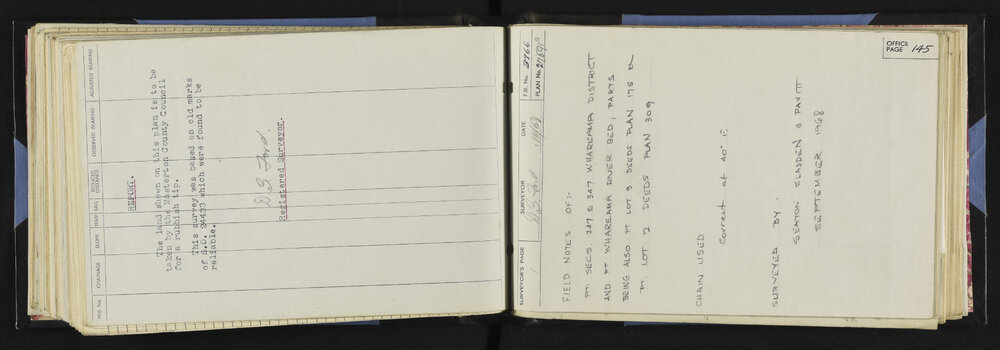 PEG No.
CHAINAGE
SLOPE
TEMP.
SAG
OBSERVED BEARING
ADJUSTED BEARING
REPORT.
The land shown on this plan is to be
taken by the Masterton County Council
for a rubbish tip.
This survey was based on old marks
of S.O. 24433 which were found to be
reliable.
D S Ford
Registered Surveyor.
SURVEYOR'S PAGE
1
SURVEYOR
D. S. Ford
DATE
F.B. No. 3766
PLAN No.
OFFICE
PAGE 145
FIELD NOTES OF:-
PT. SECS. 247 & 347 WHAREAMA DISTRICT
AND PT WHAREAMA RIVER BED, PARTS
BEING ALSO PT LOT 9 DEEDS PLAN 175 &
PT. LOT 2 DEEDS PLAN 309
CHAIN USED
Correct at 40° F.
SURVEYED BY.
SEATON SLADDEN & PAVITT
SEPTEMBER 1968